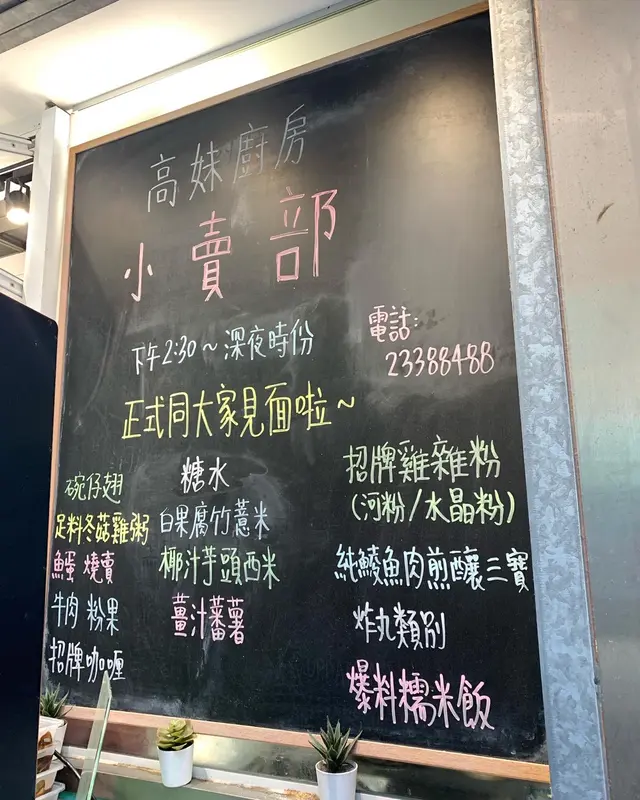 高妹廚房
小賣部
下午2:30～深夜時份
電話：
23388488
正式同大家見面啦～
碗仔翅
足料冬菇雞粥
魚蛋 燒賣
牛肉 粉果
招牌咖喱
糖水
白果腐竹薏米
椰汁芋頭西米
薑汁蕃薯
招牌雞雜粉
(河粉/水晶粉)
純鯪魚肉煎釀三寶
炸丸類別
爆料糯米飯